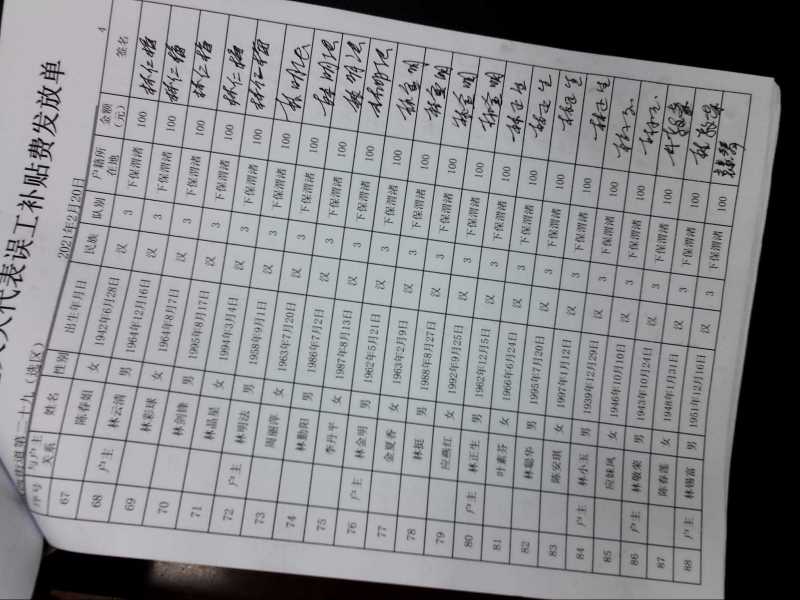 代表误工补贴费发放单
街道第二十九（选区） 2021年2月20日 4
序号 与户主关系 姓名 性别 出生年月日 民族 队别 户籍所在地 金额（元） 签名
67 陈春娟 女 1942年6月28日 汉 3 下保渭渚 100
68 户主 林云清 男 1964年12月16日 汉 3 下保渭渚 100
69 林彩球 女 1964年8月7日 汉 3 下保渭渚 100
70 林剑锋 男 1995年8月17日 汉 3 下保渭渚 100
71 林晶星 女 1994年3月4日 汉 3 下保渭渚 100
72 户主 林明法 男 1958年9月1日 汉 3 下保渭渚 100 林明法
73 周丽萍 女 1963年7月20日 汉 3 下保渭渚 100 林明法
74 林勤阳 男 1986年7月2日 汉 3 下保渭渚 100 林明法
75 李丹平 女 1987年8月13日 汉 3 下保渭渚 100 林明法
76 户主 林金明 男 1962年5月21日 汉 3 下保渭渚 100 林金明
77 金夏香 女 1963年2月9日 汉 3 下保渭渚 100 林金明
78 林挺 男 1988年8月27日 汉 3 下保渭渚 100 林金明
79 应燕红 女 1992年9月25日 汉 3 下保渭渚 100 林金明
80 户主 林正生 男 1962年12月5日 汉 3 下保渭渚 100 林正生
81 叶素芬 女 1966年6月24日 汉 3 下保渭渚 100 林正生
82 林聪华 男 1995年7月20日 汉 3 下保渭渚 100 林正生
83 陈安琪 女 1997年1月12日 汉 3 下保渭渚 100 林正生
84 户主 林小玉 男 1939年12月29日 汉 3 下保渭渚 100
85 应妹凤 女 1946年10月10日 汉 3 下保渭渚 100
86 户主 林敬荣 男 1943年10月24日 汉 3 下保渭渚 100
87 陈春莲 女 1948年1月31日 汉 3 下保渭渚 100
88 户主 林锡富 男 1951年12月16日 汉 3 下保渭渚 100